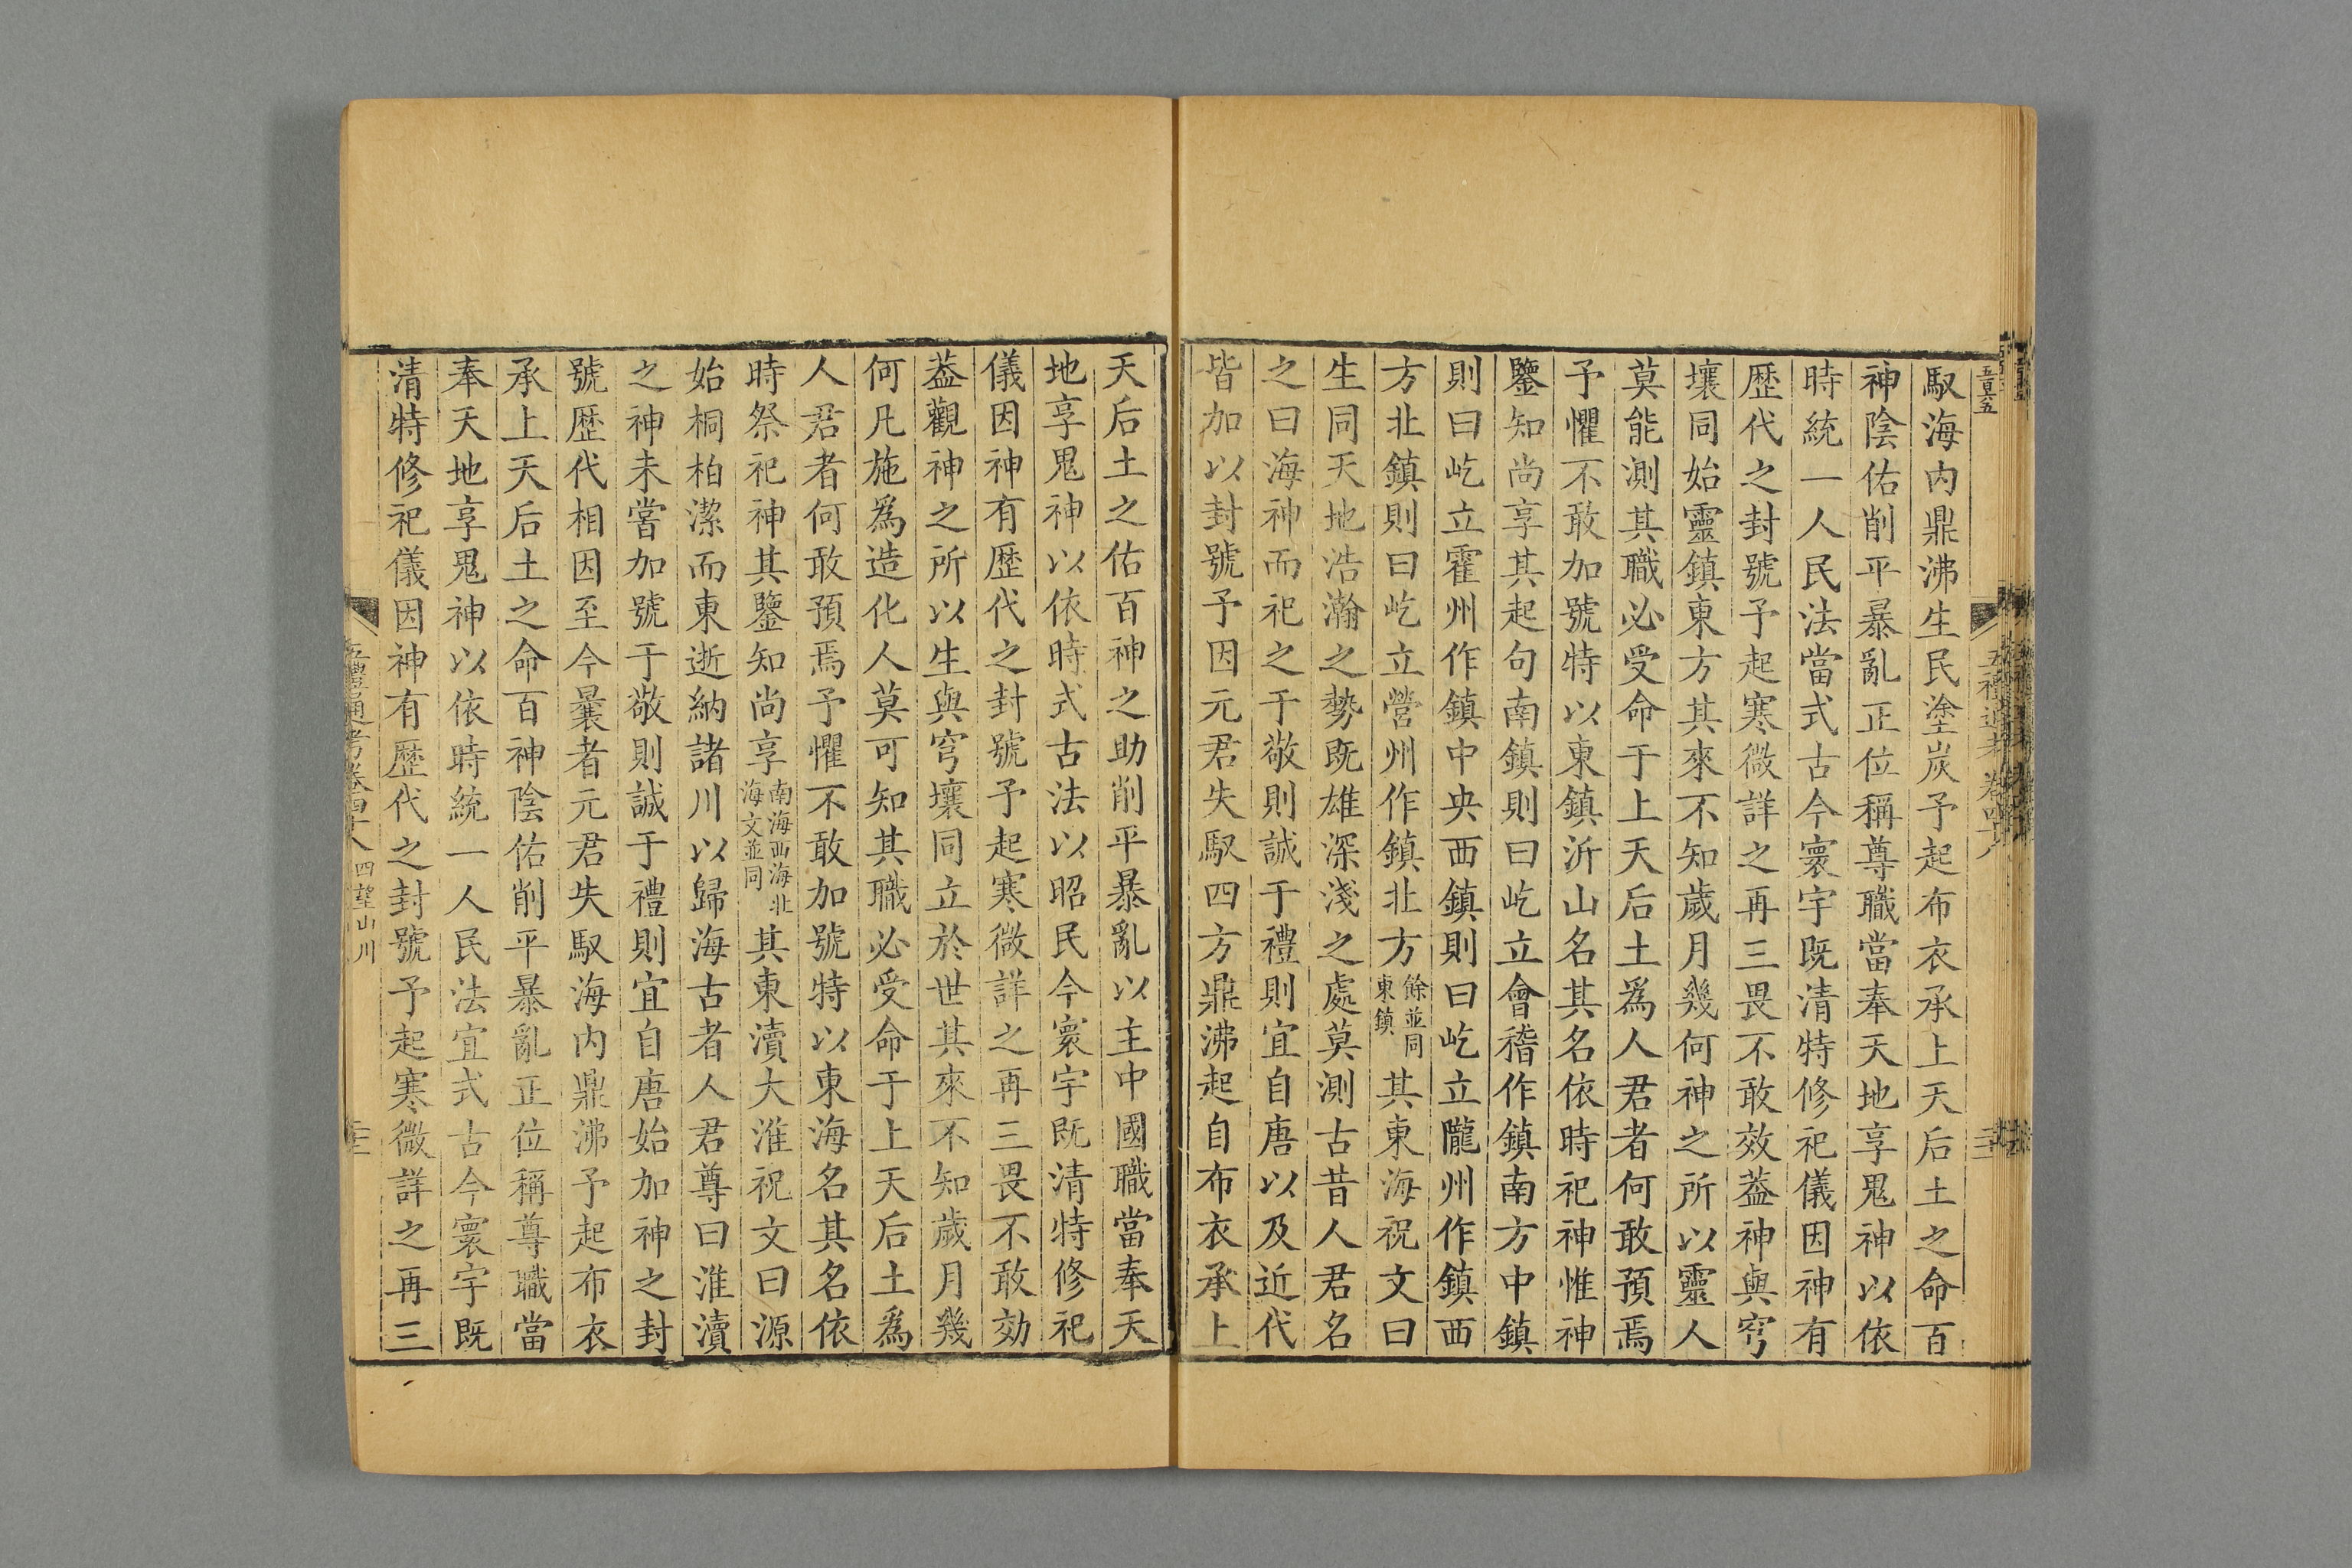 馭海内鼎沸生民塗炭予起布衣承上天后土之命百
神陰佑削平暴亂正位稱尊職當奉天地享鬼神以依
時統一人民法當式古今寰宇既清特修祀儀因神有
歴代之封號予起寒微詳之再三畏不敢效葢神與穹
壤同始靈鎮東方其來不知歲月幾何神之所以靈人
莫能測其職必受命于上天后土爲人君者何敢預焉
予懼不敢加號特以東鎮沂山名其名依時祀神惟神
鑒知尚享其起句南鎮則曰屹立會稽作鎮南方中鎮
則曰屹立霍州作鎮中央西鎮則曰屹立隴州作鎮西
方北鎮則曰屹立營州作鎮北方餘並同東鎮其東海祝文曰
生同天地浩瀚之勢既雄深淺之處莫測古昔人君名
之曰海神而祀之于敬則誠于禮則宜自唐以及近代
皆加以封號予因元君失馭四方鼎沸起自布衣承上
天后土之佑百神之助削平暴亂以主中國職當奉天
地享鬼神以依時式古法以昭民今寰宇既清特修祀
儀因神有歴代之封號予起寒微詳之再三畏不敢効
葢觀神之所以生與穹壤同立於世其來不知歲月幾
何凡施爲造化人莫可知其職必受命于上天后土爲
人君者何敢預焉予懼不敢加號特以東海名其名依
時祭祀神其鑒知尚享南海西海北海文並同其東瀆大淮祝文曰源
始桐柏潔而東逝納諸川以歸海古者人君尊曰淮瀆
之神未嘗加號于敬則誠于禮則宜自唐始加神之封
號歴代相因至今曩者元君失馭海内鼎沸予起布衣
承上天后土之命百神陰佑削平暴亂正位稱尊職當
奉天地享鬼神以依時統一人民法宜式古今寰宇既
清特修祀儀因神有歴代之封號予起寒微詳之再三
五禮通考卷四十八 四望山川